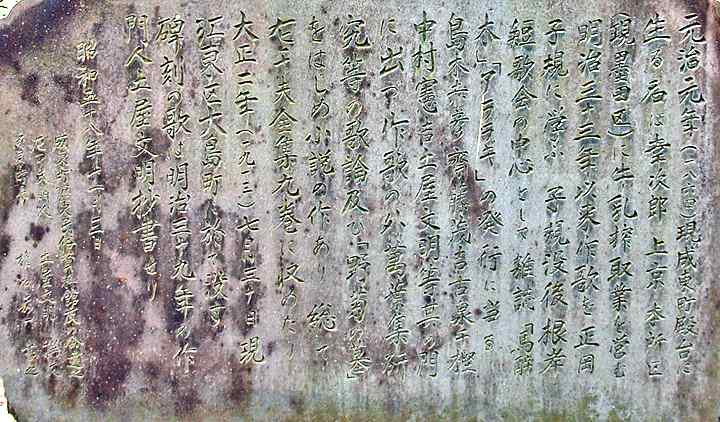 元治元年(一八六四)現成東町殿台に
生る 名は幸次郎 上京 本所区
(現墨田区)に牛乳搾取業を営む
明治三十三年以来作歌を正岡
子規に学ぶ 子規没後 根岸
短歌会の中心をして 雑誌「馬酔
木」「アララギ」の発行に当る
島木赤彦 斎藤茂吉 古泉千樫
中村憲吉 土屋文明等其の門
に出づ 作歌の外萬葉集研
究等の歌論及び「野菊の墓」
をはじめ小説の作あり 総て
左千夫全集九巻に収めたり
大正二年(一九一三)七月三十日 現
江東区大島町に於て没す
碑刻の歌は明治三十九年の作
門人土屋文明抄書せり
昭和五十八年十一月三日
土屋文明